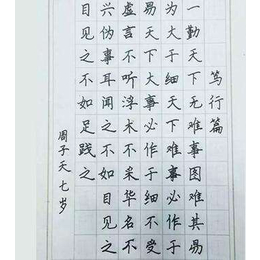 笃行篇
一勤天下无难事图难其易
为大于细天下难事必作于
易天下大事必作于细不受
虚言不听浮术不采华名不
兴伪事不耳闻之不如目见之
目见之不如足践之
周子天七岁